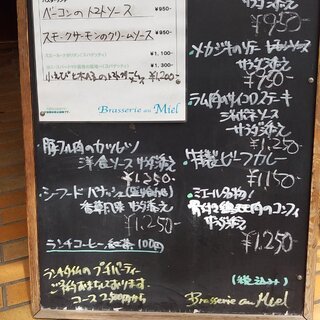 ベーコンのトマトソース ¥950-
スモークサーモンのクリームソース
¥950-
¥1,100-
¥1,300-
小えび ¥1,200-
Brasserie au Miel
豚フィレ肉のカツレツ
洋食ソース サラダ添え
¥1.250-
シーフード
香草風味 サラダ添え
¥1.250-
ランチコーヒー・紅茶 (100円)
ランチタイムのプチパーティー
ご予約おまちしております。
コース 2,500円から
サラダ添え
¥950-
メカジキのソテー トマトソース
サラダ添え
¥950-
ラム肉のサイコロステーキ
ジャポネソース
サラダ添え
¥1250-
特製ビーフカレー
¥1150-
ミエール名物
骨付き鶏モモ肉のコンフィ
サラダ添え
¥1.250-
(税込み)
Brasserie au Miel